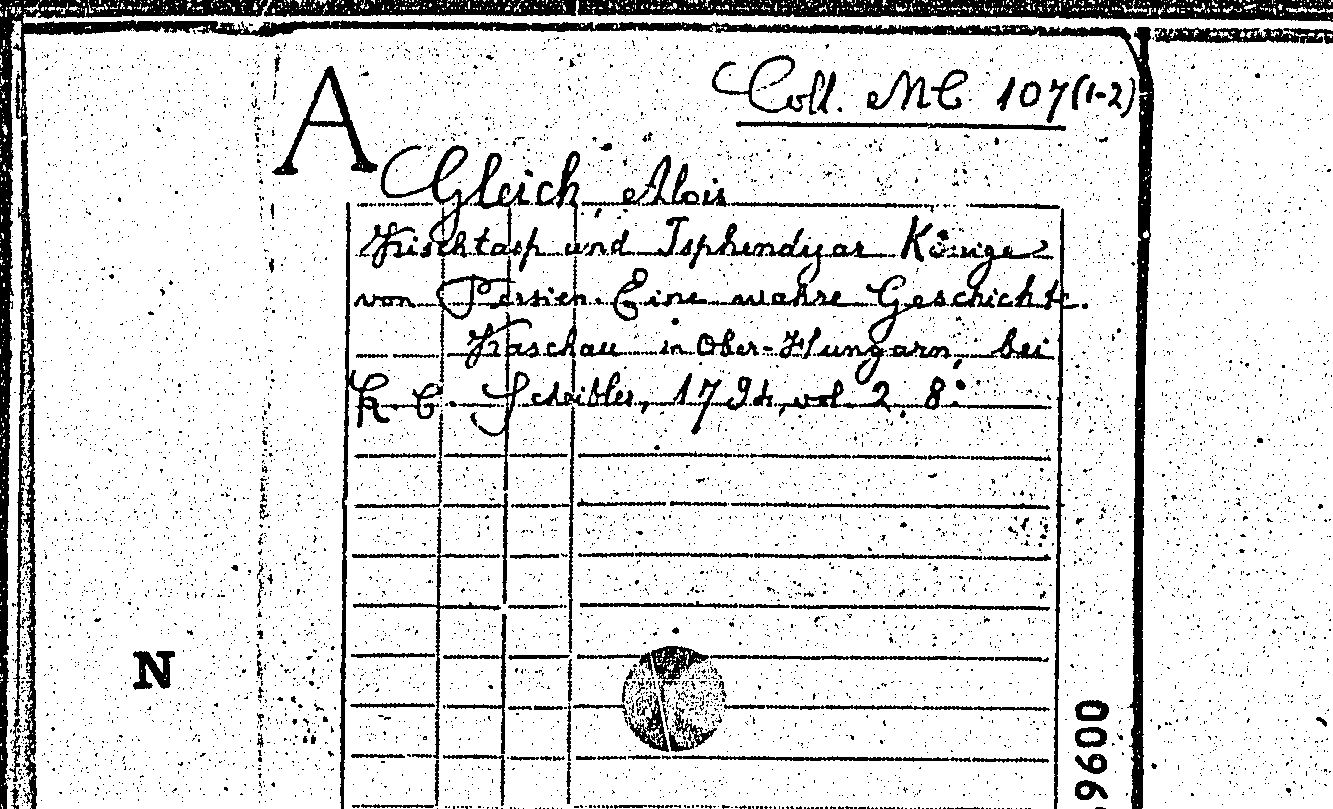 A
Coll. MC 107(1-2)
Gleich, Alois
Krischtasp und Isphendyar Könige
von Persien. Eine wahre Geschichte.
Kaschau in Ober-Hungarn, bei
K. C. Scheibler, 1794, vol. 2. 8:
N
9600